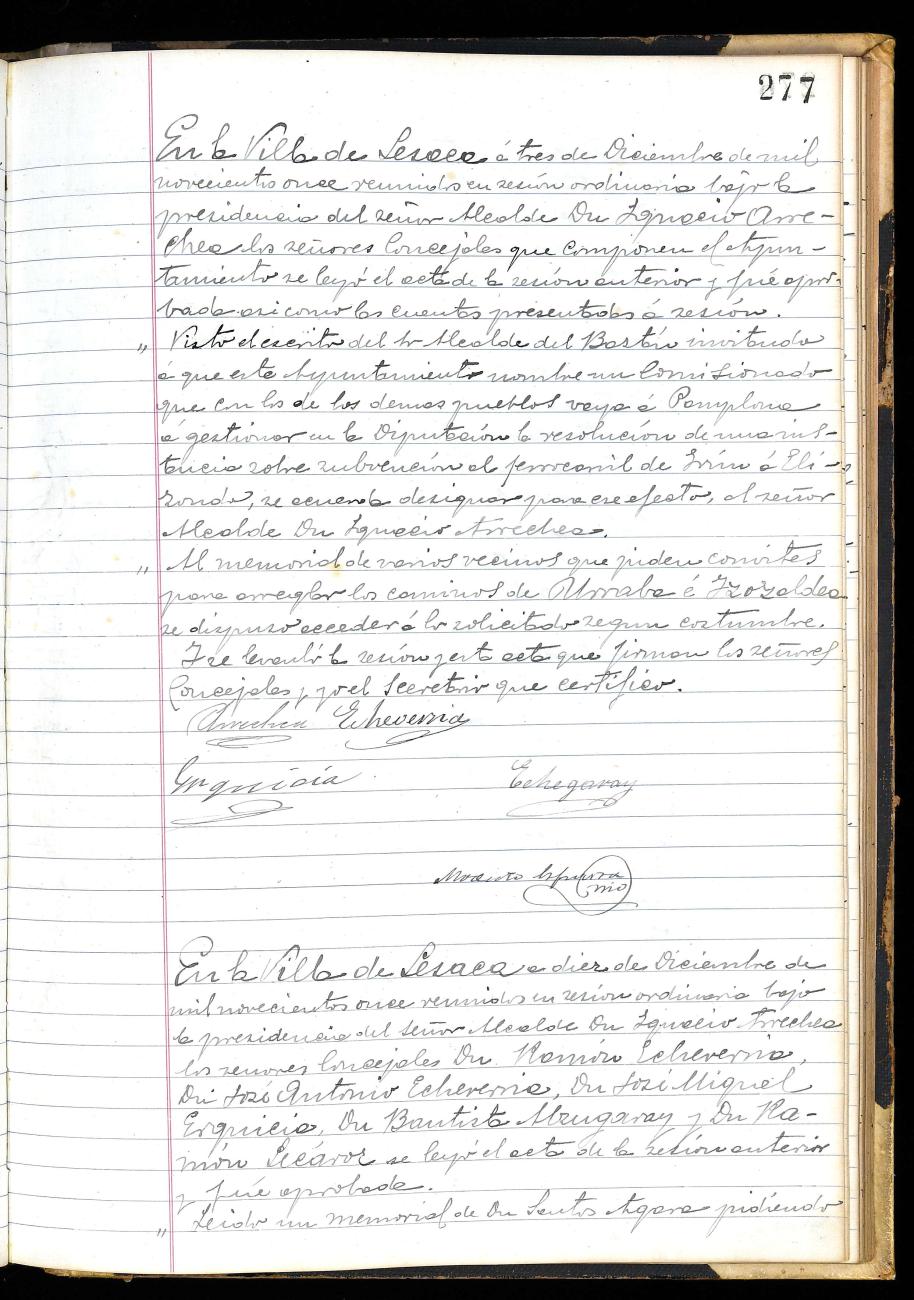 277
En la Villa de Lesaca á tres de Diciembre de mil
novecientos once reunidos en sesión ordinaria bajo la
presidencia del señor Alcalde Dn Ignacio Arre-
chea los señores Concejales que componen el Ayun-
tamiento se leyó el acta de la sesión anterior y fué apro-
bada asi como las cuentas presentadas á sesión.
" Visto el escrito del Sr Alcalde del Baztán invitando
á que este Ayuntamiento nombre un Comisionado
que con los de los demas pueblos vaya á Pamplona
á gestionar en la Diputación la resolución de una ins-
tancia sobre subvención al ferrocarril de Irún á Eli-
zondo, se acuerda designar para ese efecto, al señor
Alcalde Dn Ignacio Arrechea.
" Al memorial de varios vecinos que piden convites
para arreglar los caminos de Urraba é Izozaldea
se dispuso acceder á lo solicitado segun costumbre.
Y se levantó la sesión y esta acta que firman los señores
Concejales y yo el Secretario que certifico.
Arrechea Echeverria
Erquicia Echegaray
En la Villa de Lesaca a diez de Diciembre de
mil novecientos once reunidos en sesión ordinaria bajo
la presidencia del señor Alcalde Dn Ignacio Arrechea
los señores Concejales Dn Ramón Echeverria,
Dn José Antonio Echeverria, Dn José Miguel
Erquicia, Dn Bautista Alzugaray y Dn Ra-
món Lecároz se leyó el acta de la sesión anterior
y fué aprobada.
" Leido un memorial de Dn Santos Agara pidiendo